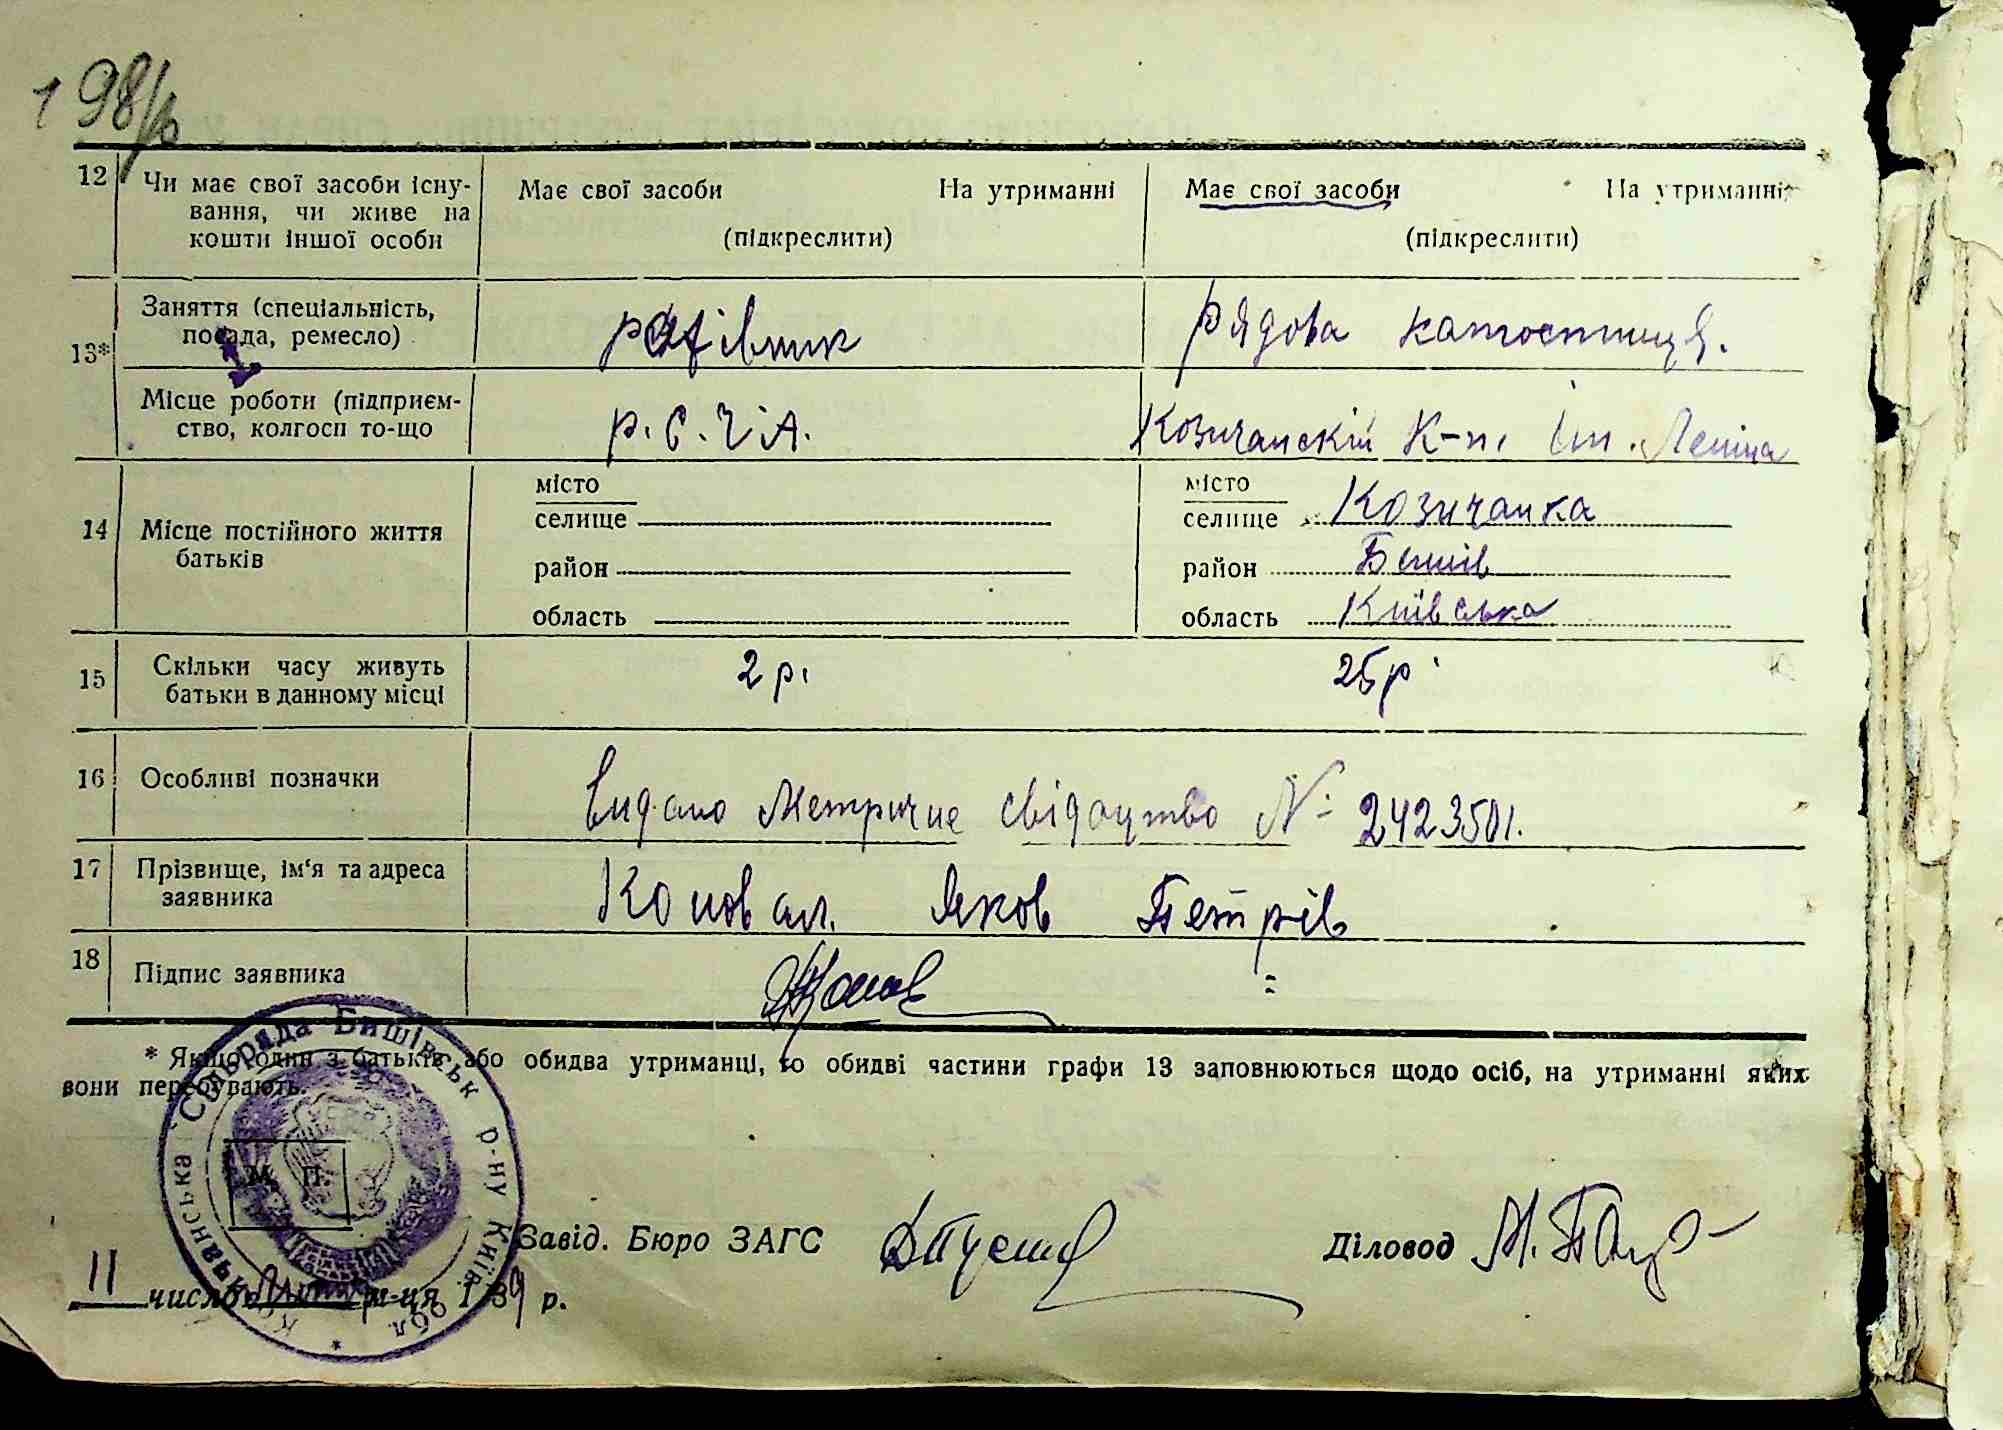 198/
12 Чи має свої засоби існу-
вання, чи живе на
кошти іншої особи
Має свої засоби На утриманні
(підкреслити)
Має свої засоби На утриманні
(підкреслити)
13*
Заняття (спеціальність,
посада, ремесло)
Рядова
Місце роботи (підприєм-
ство, колгосп то-що
Р.С.Ч.А.
Козичанскій К-п. Ім. Леніна
14 Місце постійного життя
батьків
місто
селище
район
область
місто
селище Козичанка
район
область Київська
15 Скільки часу живуть
батьки в данному місці
2 р.
25 р.
16 Особливі позначки
Видано Метричне свідоцтво № 2423501.
17 Прізвище, ім'я та адреса
заявника
Коновал Яков Петрів
18 Підпис заявника
* Якщо один з батьків або обидва утриманці, то обидві частини графи 13 заповнюються щодо осіб, на утриманні яких
вони перебувають.
Козичанська Сільрада Бишівськ р-ну Київ. обл. *
М. П.
Завід. Бюро ЗАГС
Діловод
11 число м-ця 1939 р.